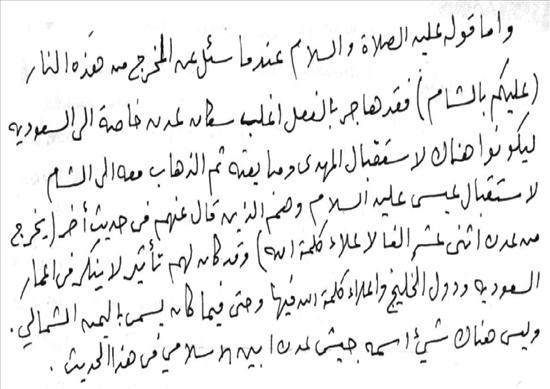 واما قوله عليه الصلاة والسلام عندما سئل عن المخرج من هذه النار
(عليكم بالشام) فقد هاجر بالفعل اغلب سكان عدن خاصة الى السعوديه
ليكونوا هناك لاستقبال المهدى ومبايعته ثم الذهاب معه الى الشام
لاستقبال عيسى عليه السلام وهم الذين قال عنهم فى حديث أخر (يخرج
من عدن اثنى عشر الفا لاعلاء كلمة الله) وقد كان لهم تأثير لا ينكر فى اعمار
السعوديه ودول الخليج واعلاء كلمة الله فيها وحتى فيما كان يسمى باليمن الشمالي .
وليس هناك شيئ اسمه جيش عدن ابين الاسلامي فى هذا الحديث .